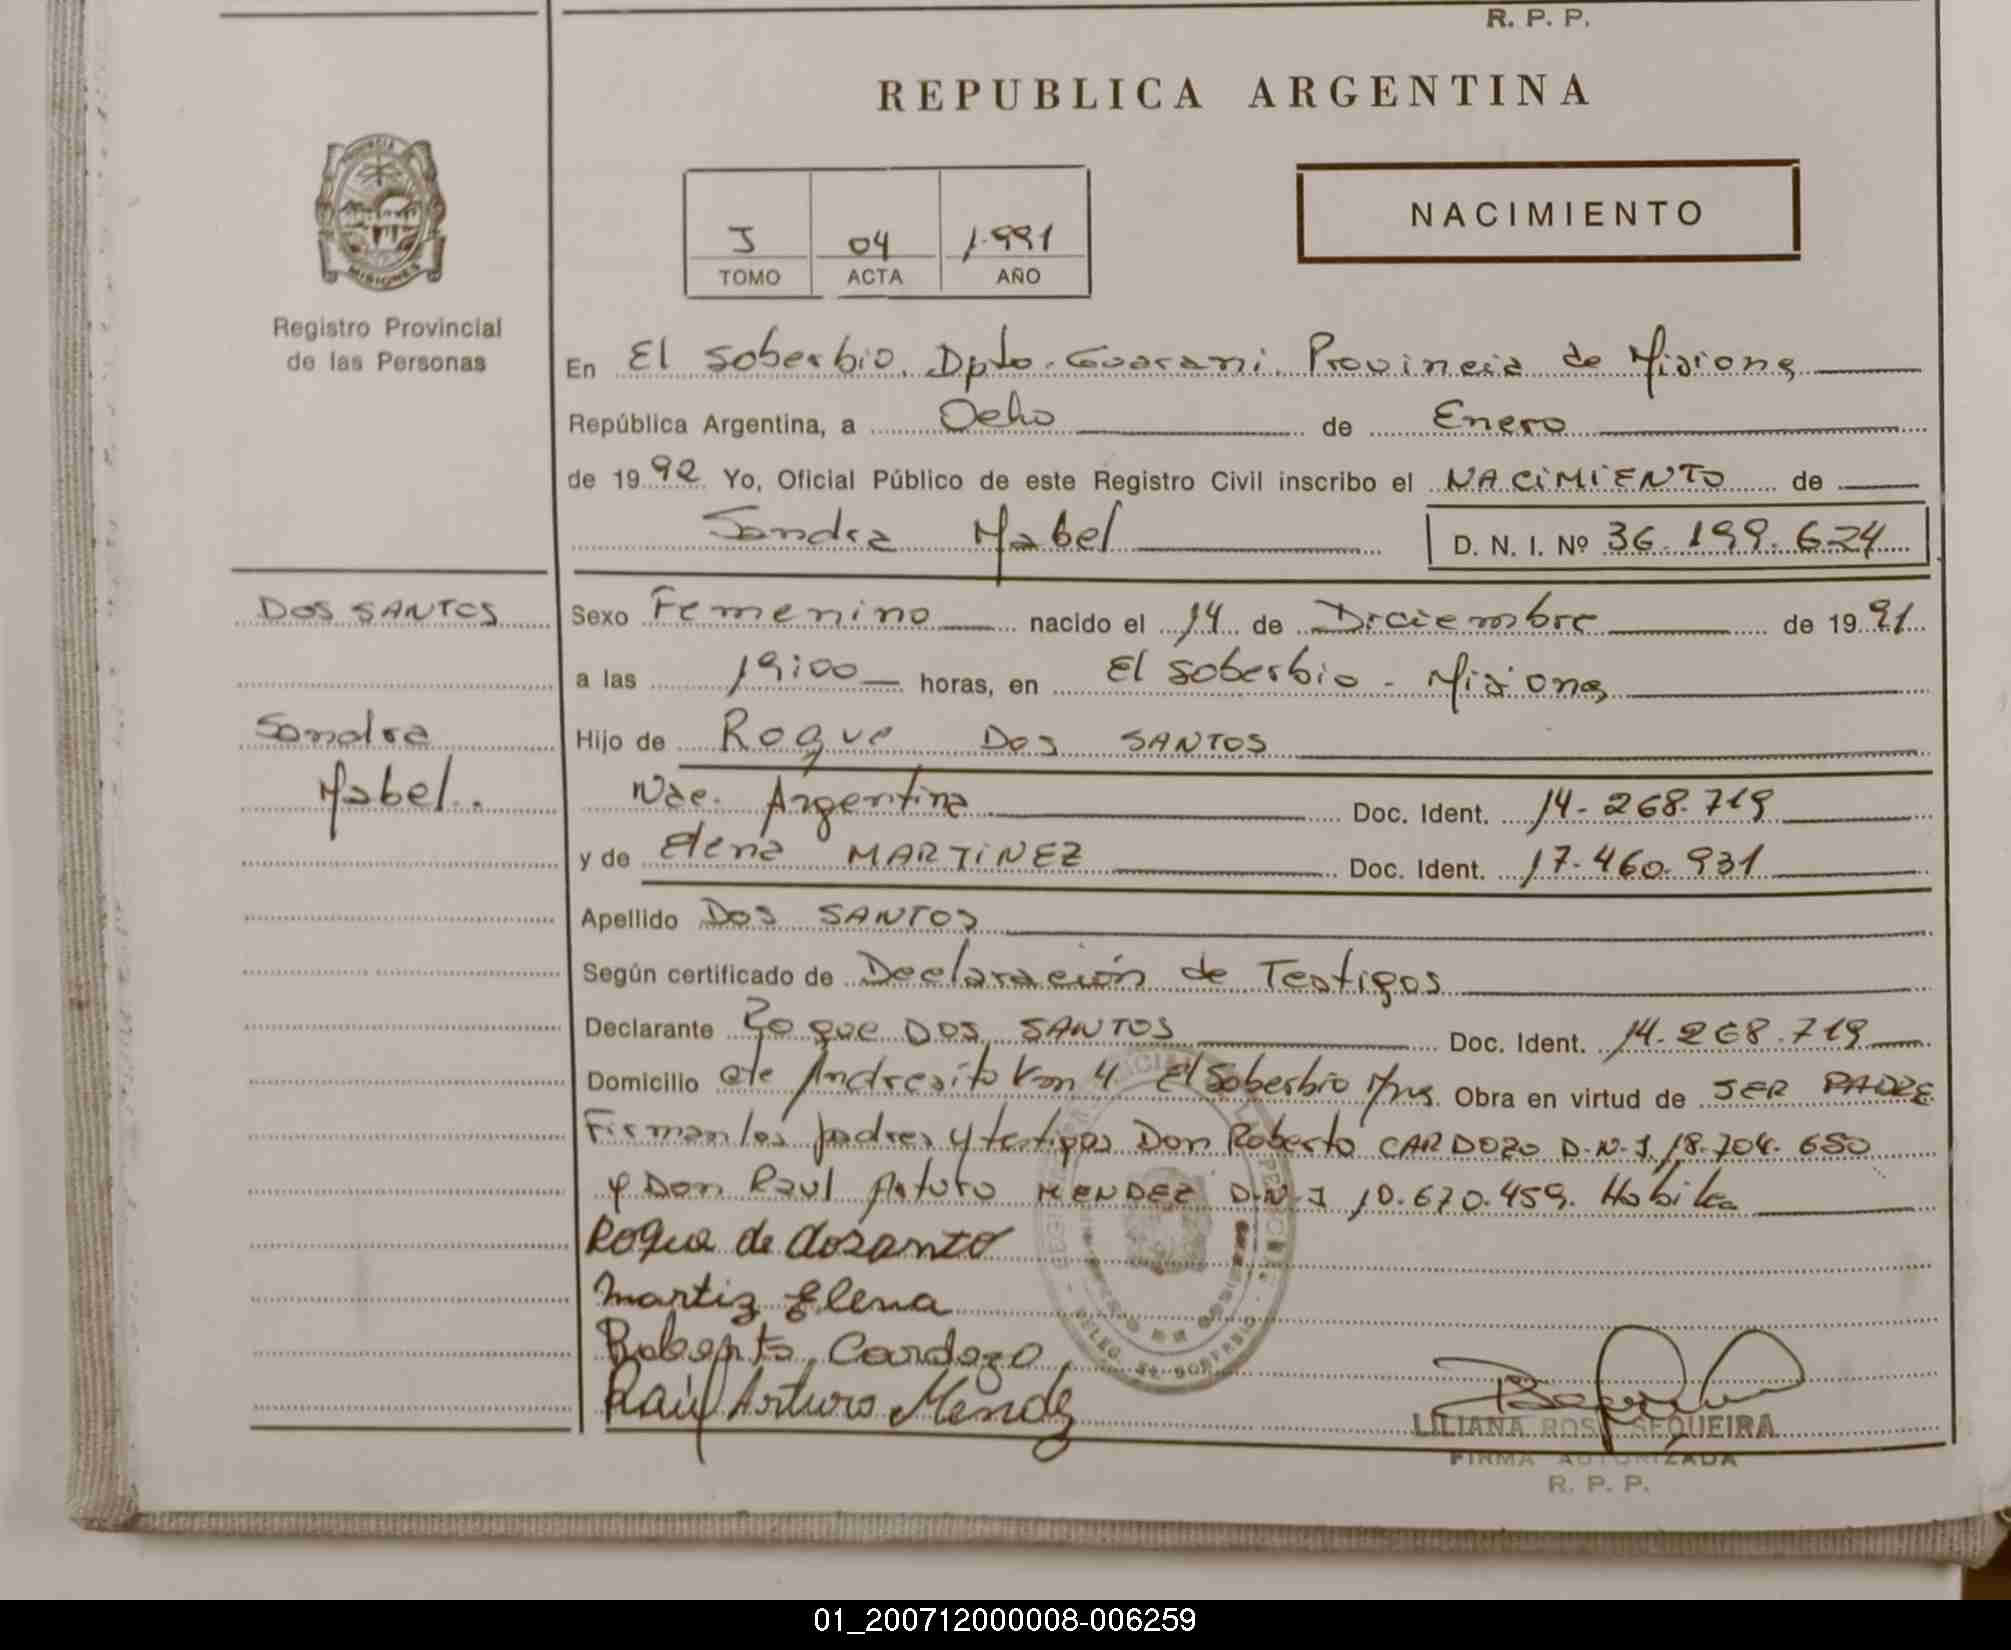 R. P. P.
REPUBLICA ARGENTINA
PROVINCIA
MISIONES
J 04 1.991
TOMO ACTA AÑO
NACIMIENTO
Registro Provincial
de las Personas
En El Soberbio. Dpto. Guarani. Provincia de Misiones
República Argentina, a Ocho de Enero
de 1992 Yo, Oficial Público de este Registro Civil inscribo el NACIMIENTO de
Sandra Mabel D. N. I. Nº 36.199.624
DOS SANTOS
Sexo Femenino nacido el 14 de Diciembre de 1991
a las 19:00 horas, en El Soberbio - Misiones
Sandra
Hijo de Roque DOS SANTOS
Mabel..
Nac. Argentina Doc. Ident. 14.268.719
y de Elena MARTINEZ Doc. Ident. 17.460.931
Apellido DOS SANTOS
Según certificado de Declaración de Testigos
Declarante Roque DOS SANTOS Doc. Ident. 14.268.719
Domicilio Andresito Km 4 El Soberbio Mns. Obra en virtud de SER PADRE
Firman los padres y testigos Don Roberto CARDOZO D.N.I 18.704.650
y Don Raul Arturo MENDEZ D.N.I 10.670.459.
Roque de dosanto
Martiz Elena
Roberto Cardozo
Raúl Arturo Mendez
LILIANA ROSA SEQUEIRA
FIRMA AUTORIZADA
R. P. P.
01_200712000008-006259